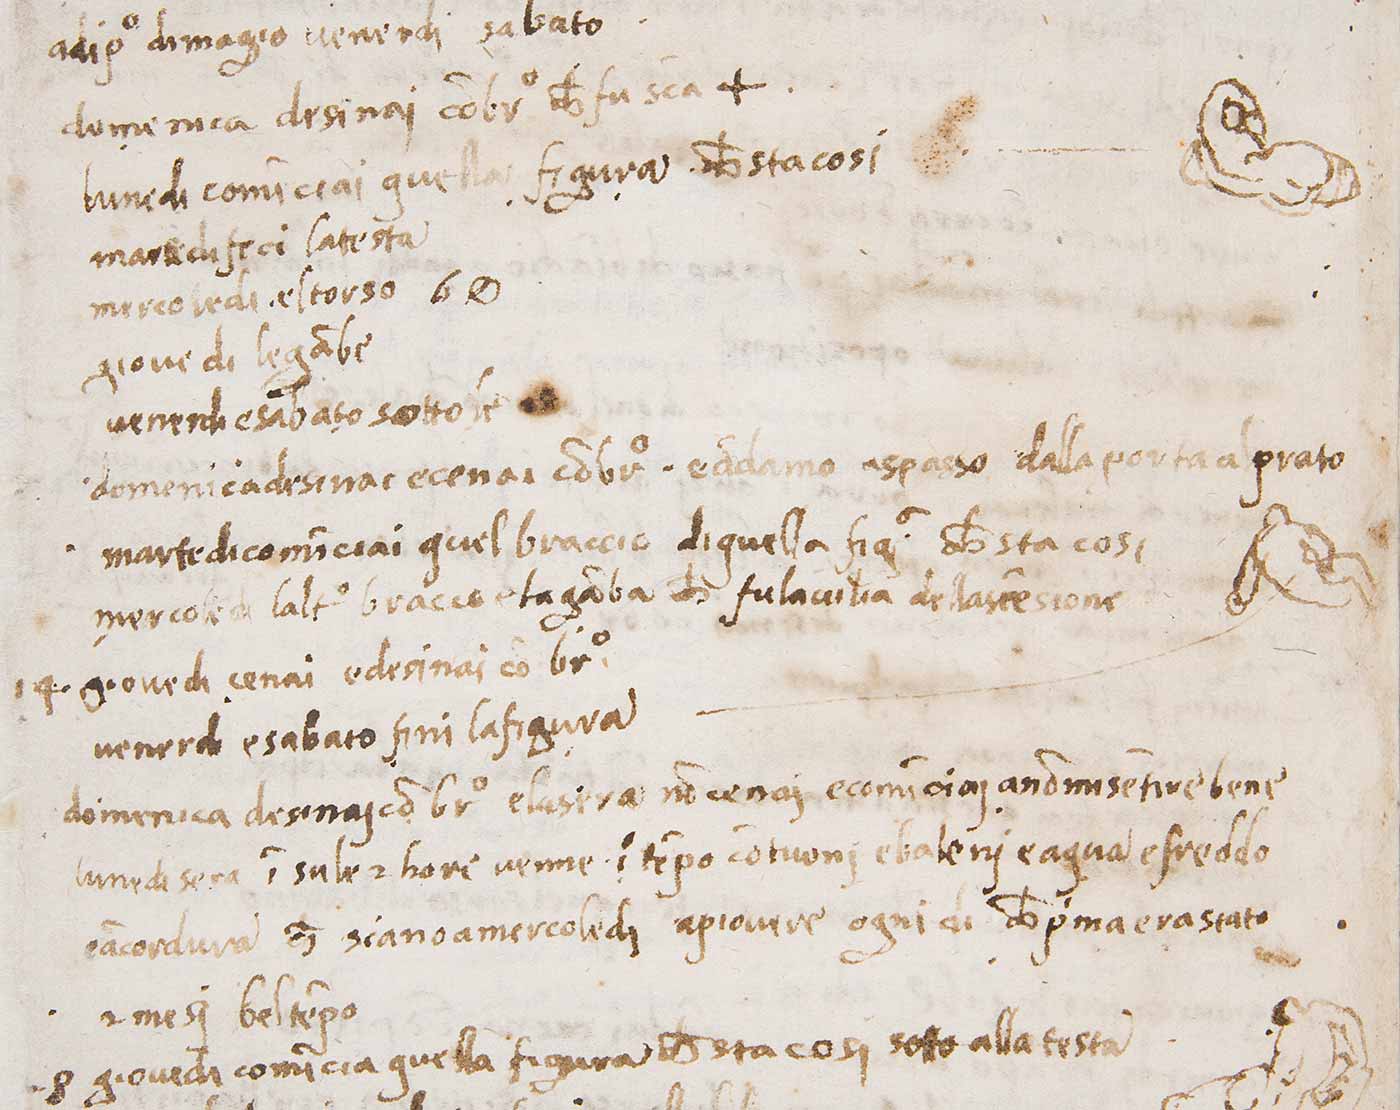 adi p.º di magio venerdi sabato
domenica desinai cō br.º ch̄ fu sc̄a +
lunedi comīciai quella figura ch̄ sta cosi
martedi feci la testa
mercoledi el torso 6
giovedi le gābe
venerdi e sabato sotto le
domenicadesinai e cenai cō br.º e ādamo a spasso dalla porta al prato
martedi comīciai quel braccio di quella fig.ª ch̄ sta cosi
mercoledi laltº braccio e la gāba ch̄ fu la della scēsione
14 giovedi cenai e desinai cō br.º
venerdi e sabato fini la figura
domenica desinai cō br.º e la sera nō cenai e comīciai a nō mi sētire bene
lunedi sera ī su le 2 hore venne ī tēpo cō tuoni e baleni e aqua e freddo
ācordura siano a mercoledi a piovere ogni di ch̄ pᵢma era stato
2 mesi bel tēpo
8 giovedi comīcia quella figura ch̄ sta cosi sotto alla testa